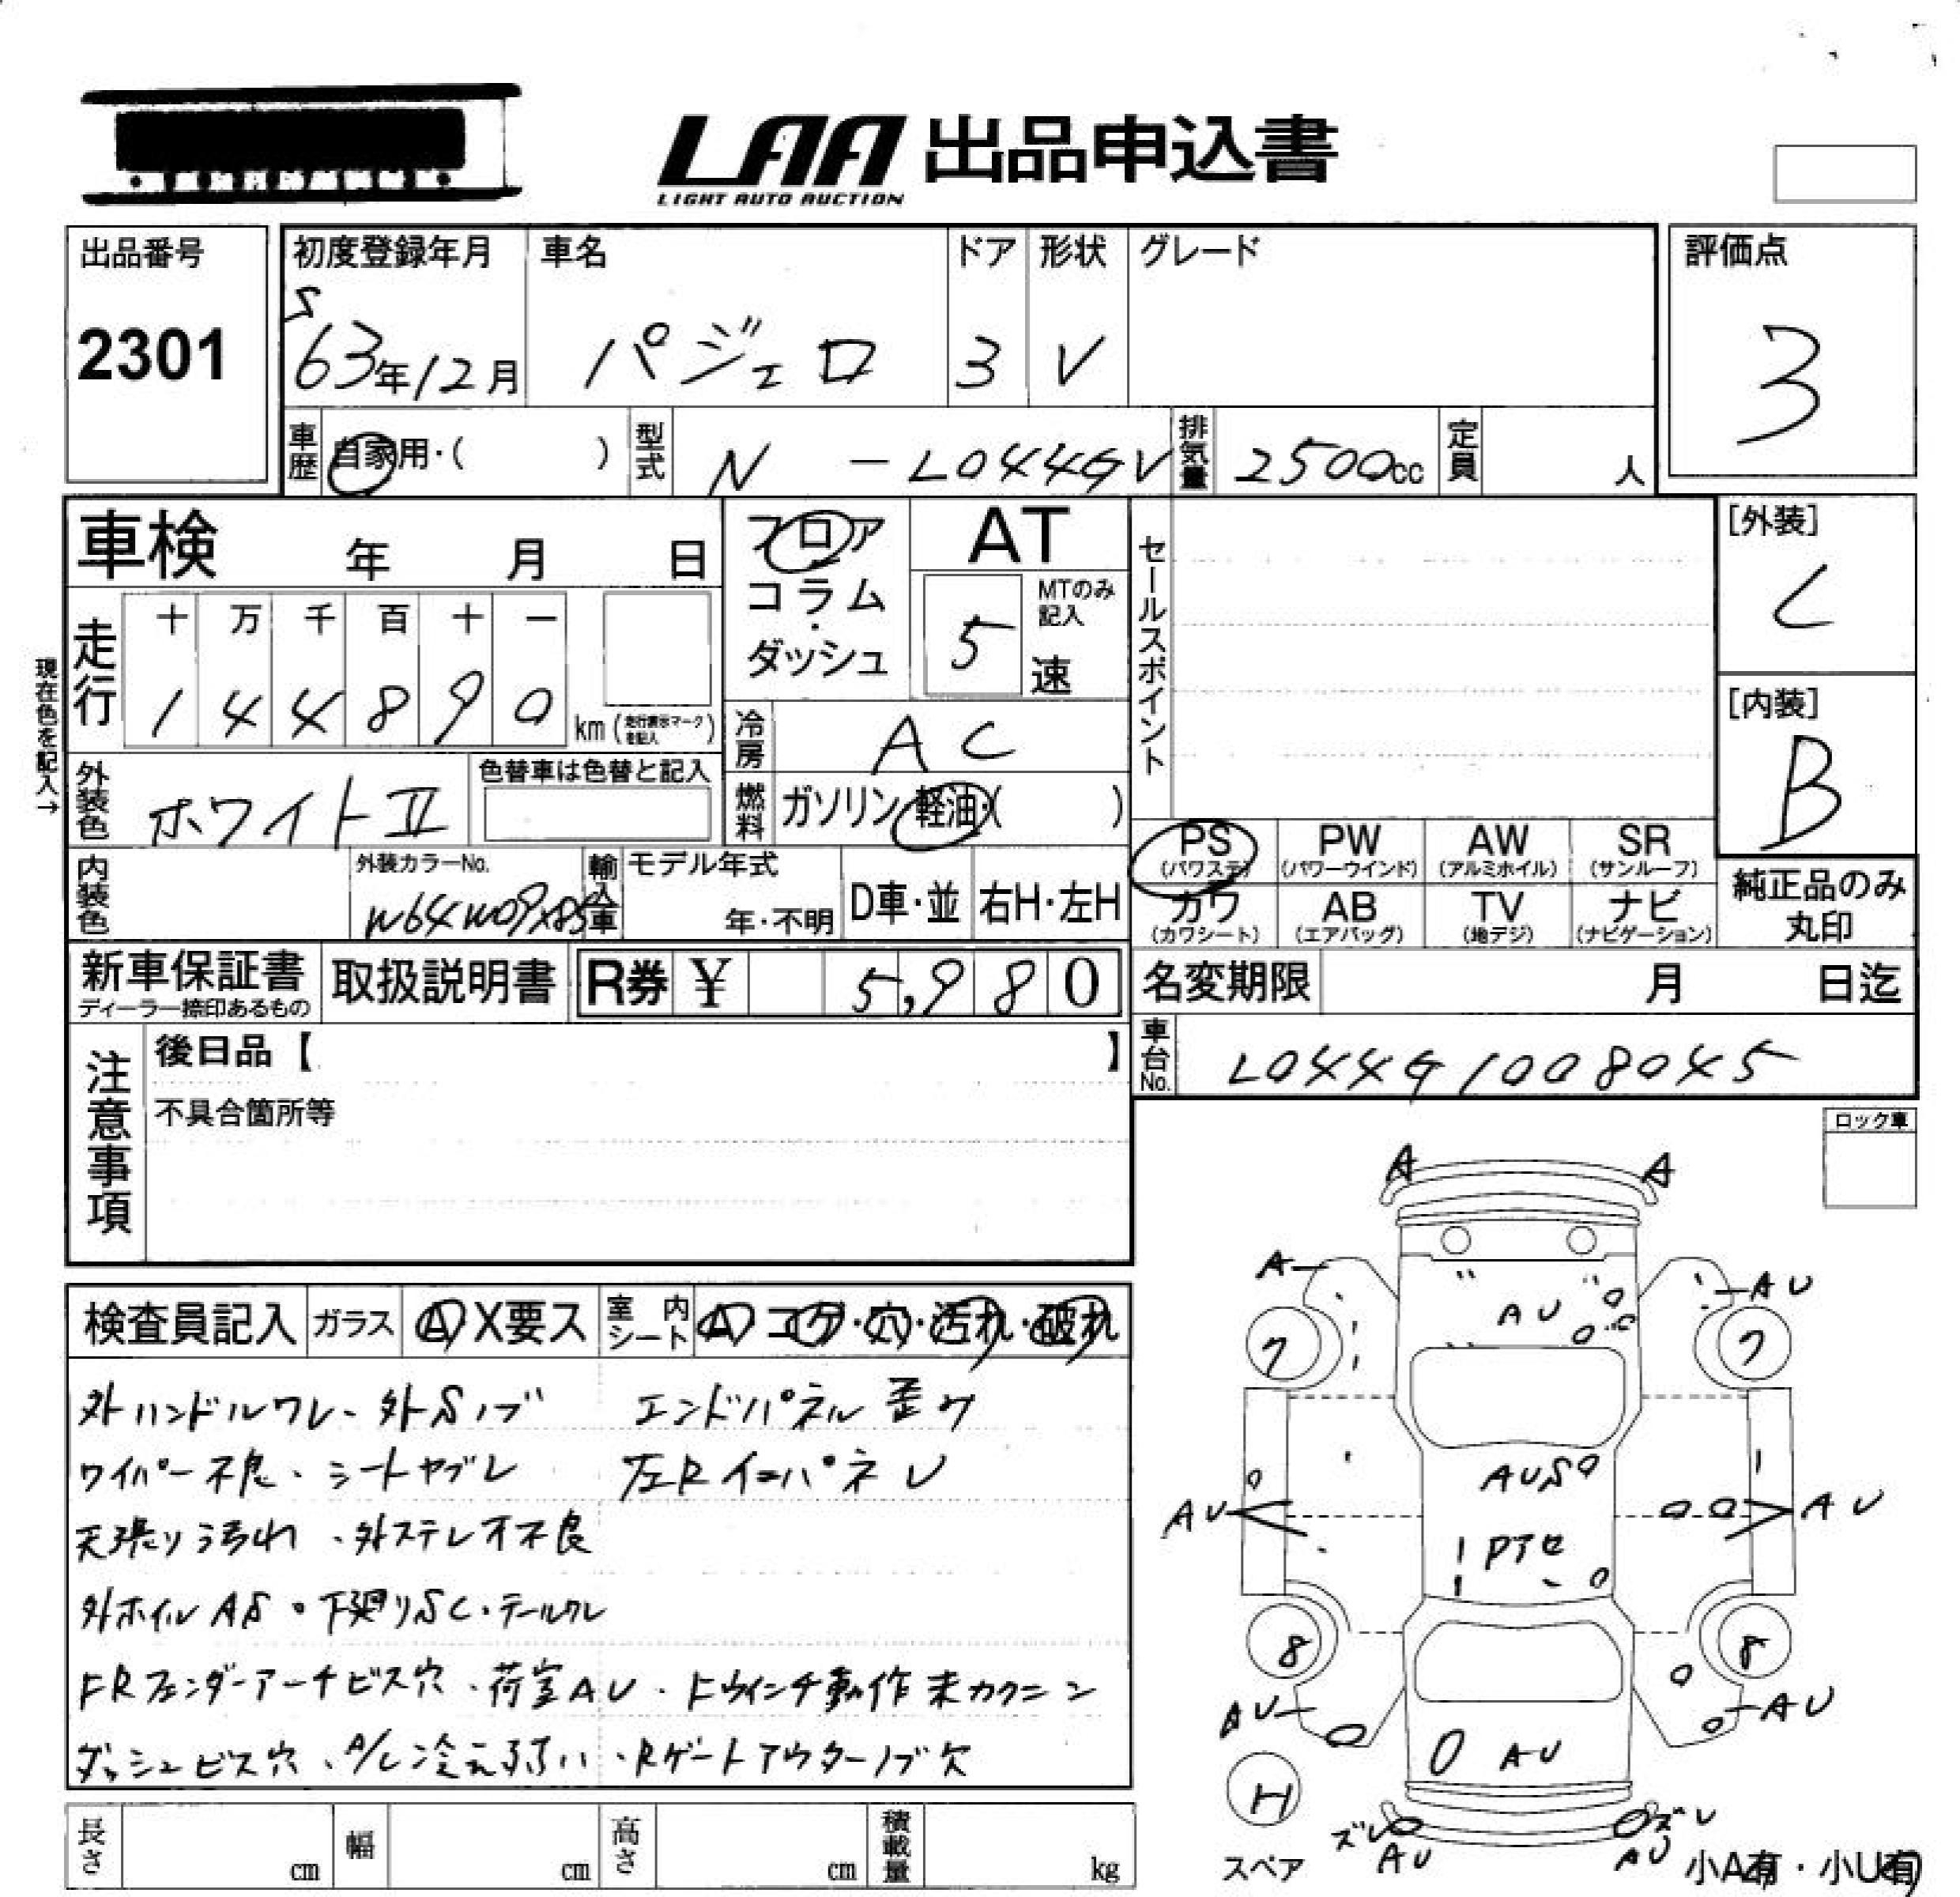 LAA 出品申込書
LIGHT AUTO AUCTION
出品番号
2301
初度登録年月
S
63年12月
車名
パジェロ
ドア
3
形状
V
グレード
評価点
3
車歴
自家用・( )
型式
N - L044GV
排気量
2500cc
定員
人
車検 年 月 日
フロア
コラム
・
ダッシュ
AT
5
MTのみ
記入
速
セールスポイント
[外装]
C
[内装]
B
現在色を記入→
走行
十 万 千 百 十 一
1 4 4 8 9 0
km (走行表示マークを記入)
冷房
AC
外装色
ホワイトII
色替車は色替と記入
燃料
ガソリン・軽油・( )
内装色
外装カラーNo.
W64W09X85
輸入車
モデル年式
年・不明
D車・並
右H・左H
PS
(パワステ)
PW
(パワーウインド)
AW
(アルミホイル)
SR
(サンルーフ)
カワ
(カワシート)
AB
(エアバッグ)
TV
(地デジ)
ナビ
(ナビゲーション)
純正品のみ
丸印
新車保証書
ディーラー捺印あるもの
取扱説明書
R券 ¥ 5,980
名変期限 月 日迄
車台No.
L044G1008045
注意事項
後日品【 】
不具合箇所等
ロック車
検査員記入
ガラス
A X要ス
室内
シート
A コゲ・穴・汚れ・破れ
外ハンドルワレ、外Sノブ
エンドパネル歪み
ワイパー不良、シートヤブレ
左R
天張り汚れ、外ステレオ不良
外ホイルAS・下廻りSC・テールワレ
FRフェンダーアーチビス穴、荷室AU、Fウインチ動作未カクニン
ダッシュビス穴、A/C冷え弱い、Rゲートアウターノブ欠
A
A
A
AU
AU
7
7
AUS
AU
AU
Pアセ
8
8
AU
AU
AU
H
スペア
ズレ
AU
ズレ
AU
小A有・小U有
長さ
cm
幅
cm
高さ
cm
積載量
kg